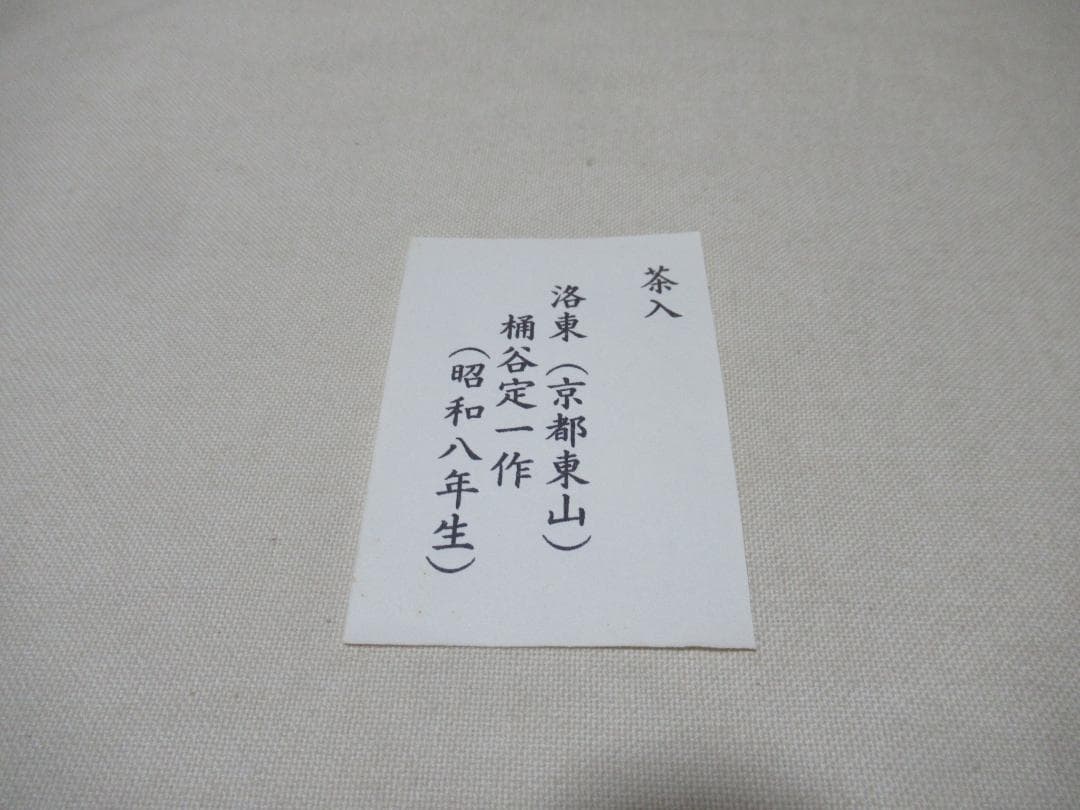 茶入
洛東（京都東山）
桶谷定一作
（昭和八年生）